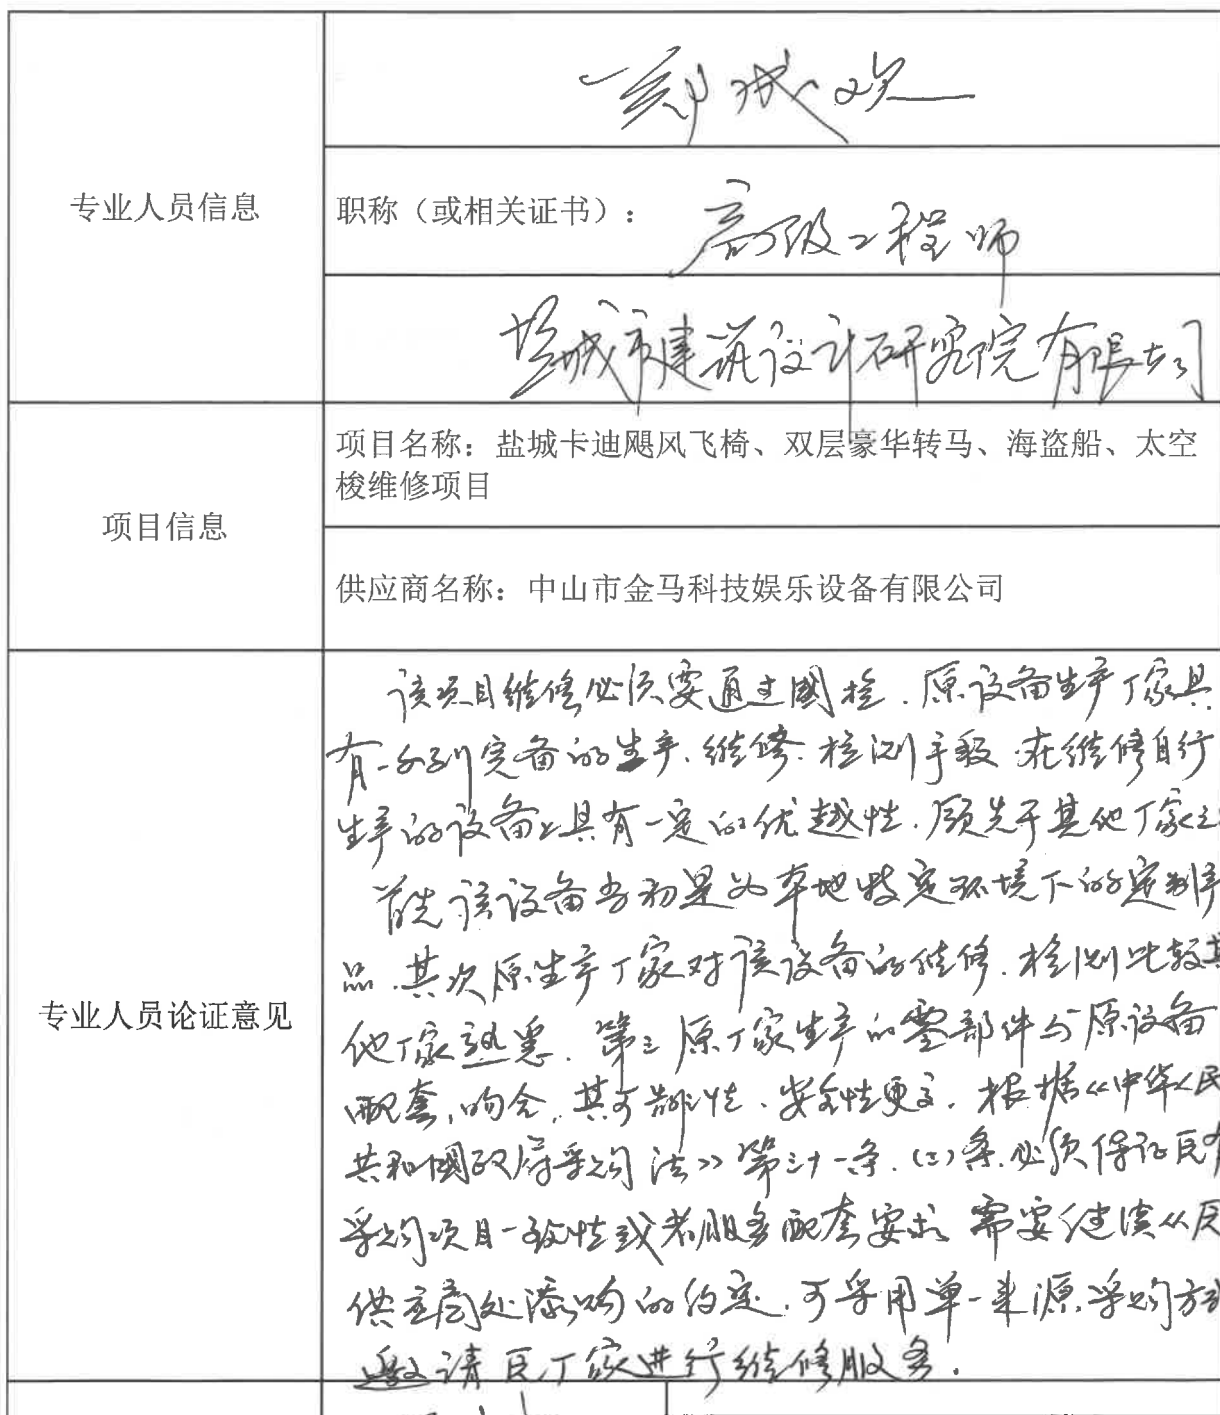 城欢
专业人员信息
职称（或相关证书）：
高级工程师
盐城市建筑设计研究院有限公司
项目信息
项目名称：盐城卡迪飓风飞椅、双层豪华转马、海盗船、太空
梭维修项目
供应商名称：中山市金马科技娱乐设备有限公司
专业人员论证意见
该项目维修必须要通过國检.原设备生产厂家具
有一系列完备的生产.维修.检测手段.在维修自行
生产的设备上具有一定的优越性.领先于其他厂家之
首先该设备当初是为本地特定环境下的定制产
品.其次原生产厂家对该设备的维修.检测比较其
他厂家熟悉.第三原厂家生产的零部件与原设备
配套,吻合,其可靠性.安全性更高.根据《中华人民
共和國政府采购法》第三十一条.(三)条.必须保证原有
采购项目一致性或者服务配套要求 需要继续从原
供应商处添购的约定.可采用单一来源.采购方式
邀请原厂家进行维修服务.